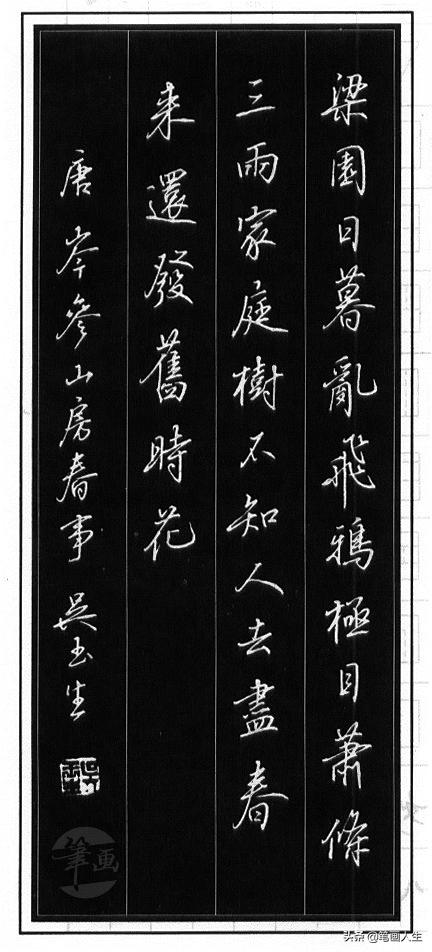 梁園日暮亂飛鴉極目蕭條
三兩家庭樹不知人去盡春
来還發舊時花
唐岑參山房春事 吴玉生
筆画
头条@笔画人生